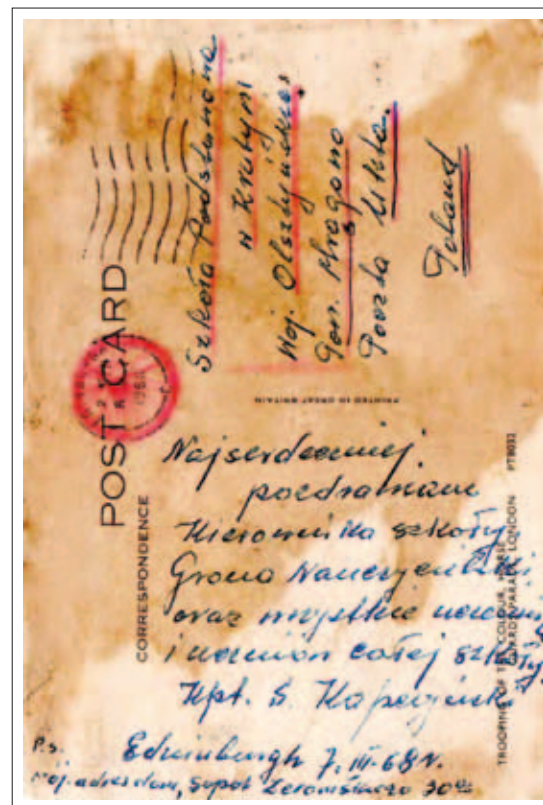 POST CARD
CORRESPONDENCE
Szkoła Podstawowa
w Krutyni
Woj. Olsztyńskie
Pow. Mrągowo
Poczta Ukta
Poland
PRINTED IN GREAT BRITAIN
Najserdeczniej
pozdrawiam
Kierownika szkoły,
Grono Nauczycielski
oraz wszystkie uczenni
i uczniów całej szkoły
Kpt. S.
Edinburgh 7.III.68 r.
P.s.
Mój adres dom. Sopot Żeromskiego 30
TROOPING OF THE COLOUR, HORSE
GUARDS PARADE, LONDON PT8033